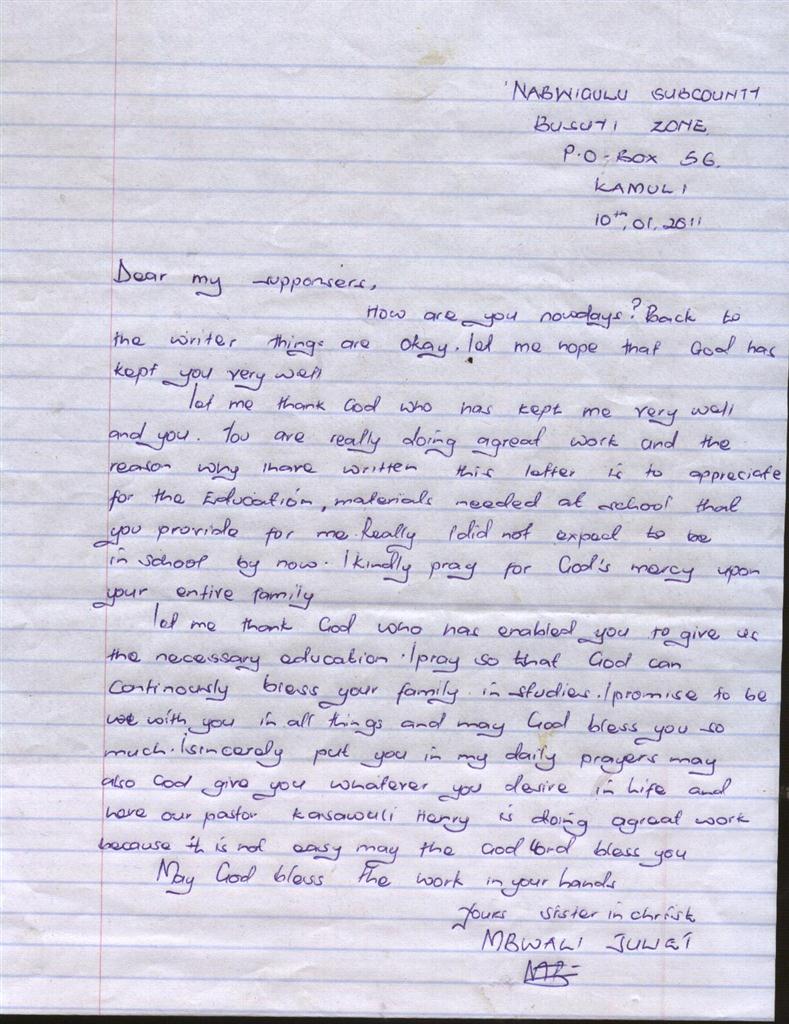 NABWIGULU SUBCOUNTY
BUSUTI ZONE
P.O-BOX 56.
KAMULI
10th, 01, 2011
Dear my supponsers,
How are you nowdays? Back to
the writer things are okay. let me hope that God has
kept you very well
let me thank God who has kept me very well
and you. You are really doing agreat work and the
reason why ihave written this letter is to appreciate
for the Education, materials needed at school that
you provide for me. Really I did not expect to be
in school by now. I kindly pray for God's mercy upon
your entire family
let me thank God who has enabled you to give us
the necessary education. I pray so that God can
Continously bless your family in studies. I promise to be
with you in all things and may God bless you so
much. I sincerely put you in my daily prayers may
also God give you whatever you desire in life and
here our pastor Kasawuli Henry is doing agreat work
because it is not easy may the God lord bless you
May God bless the work in your hands
Yours sister in christ
MBWALI JULIET